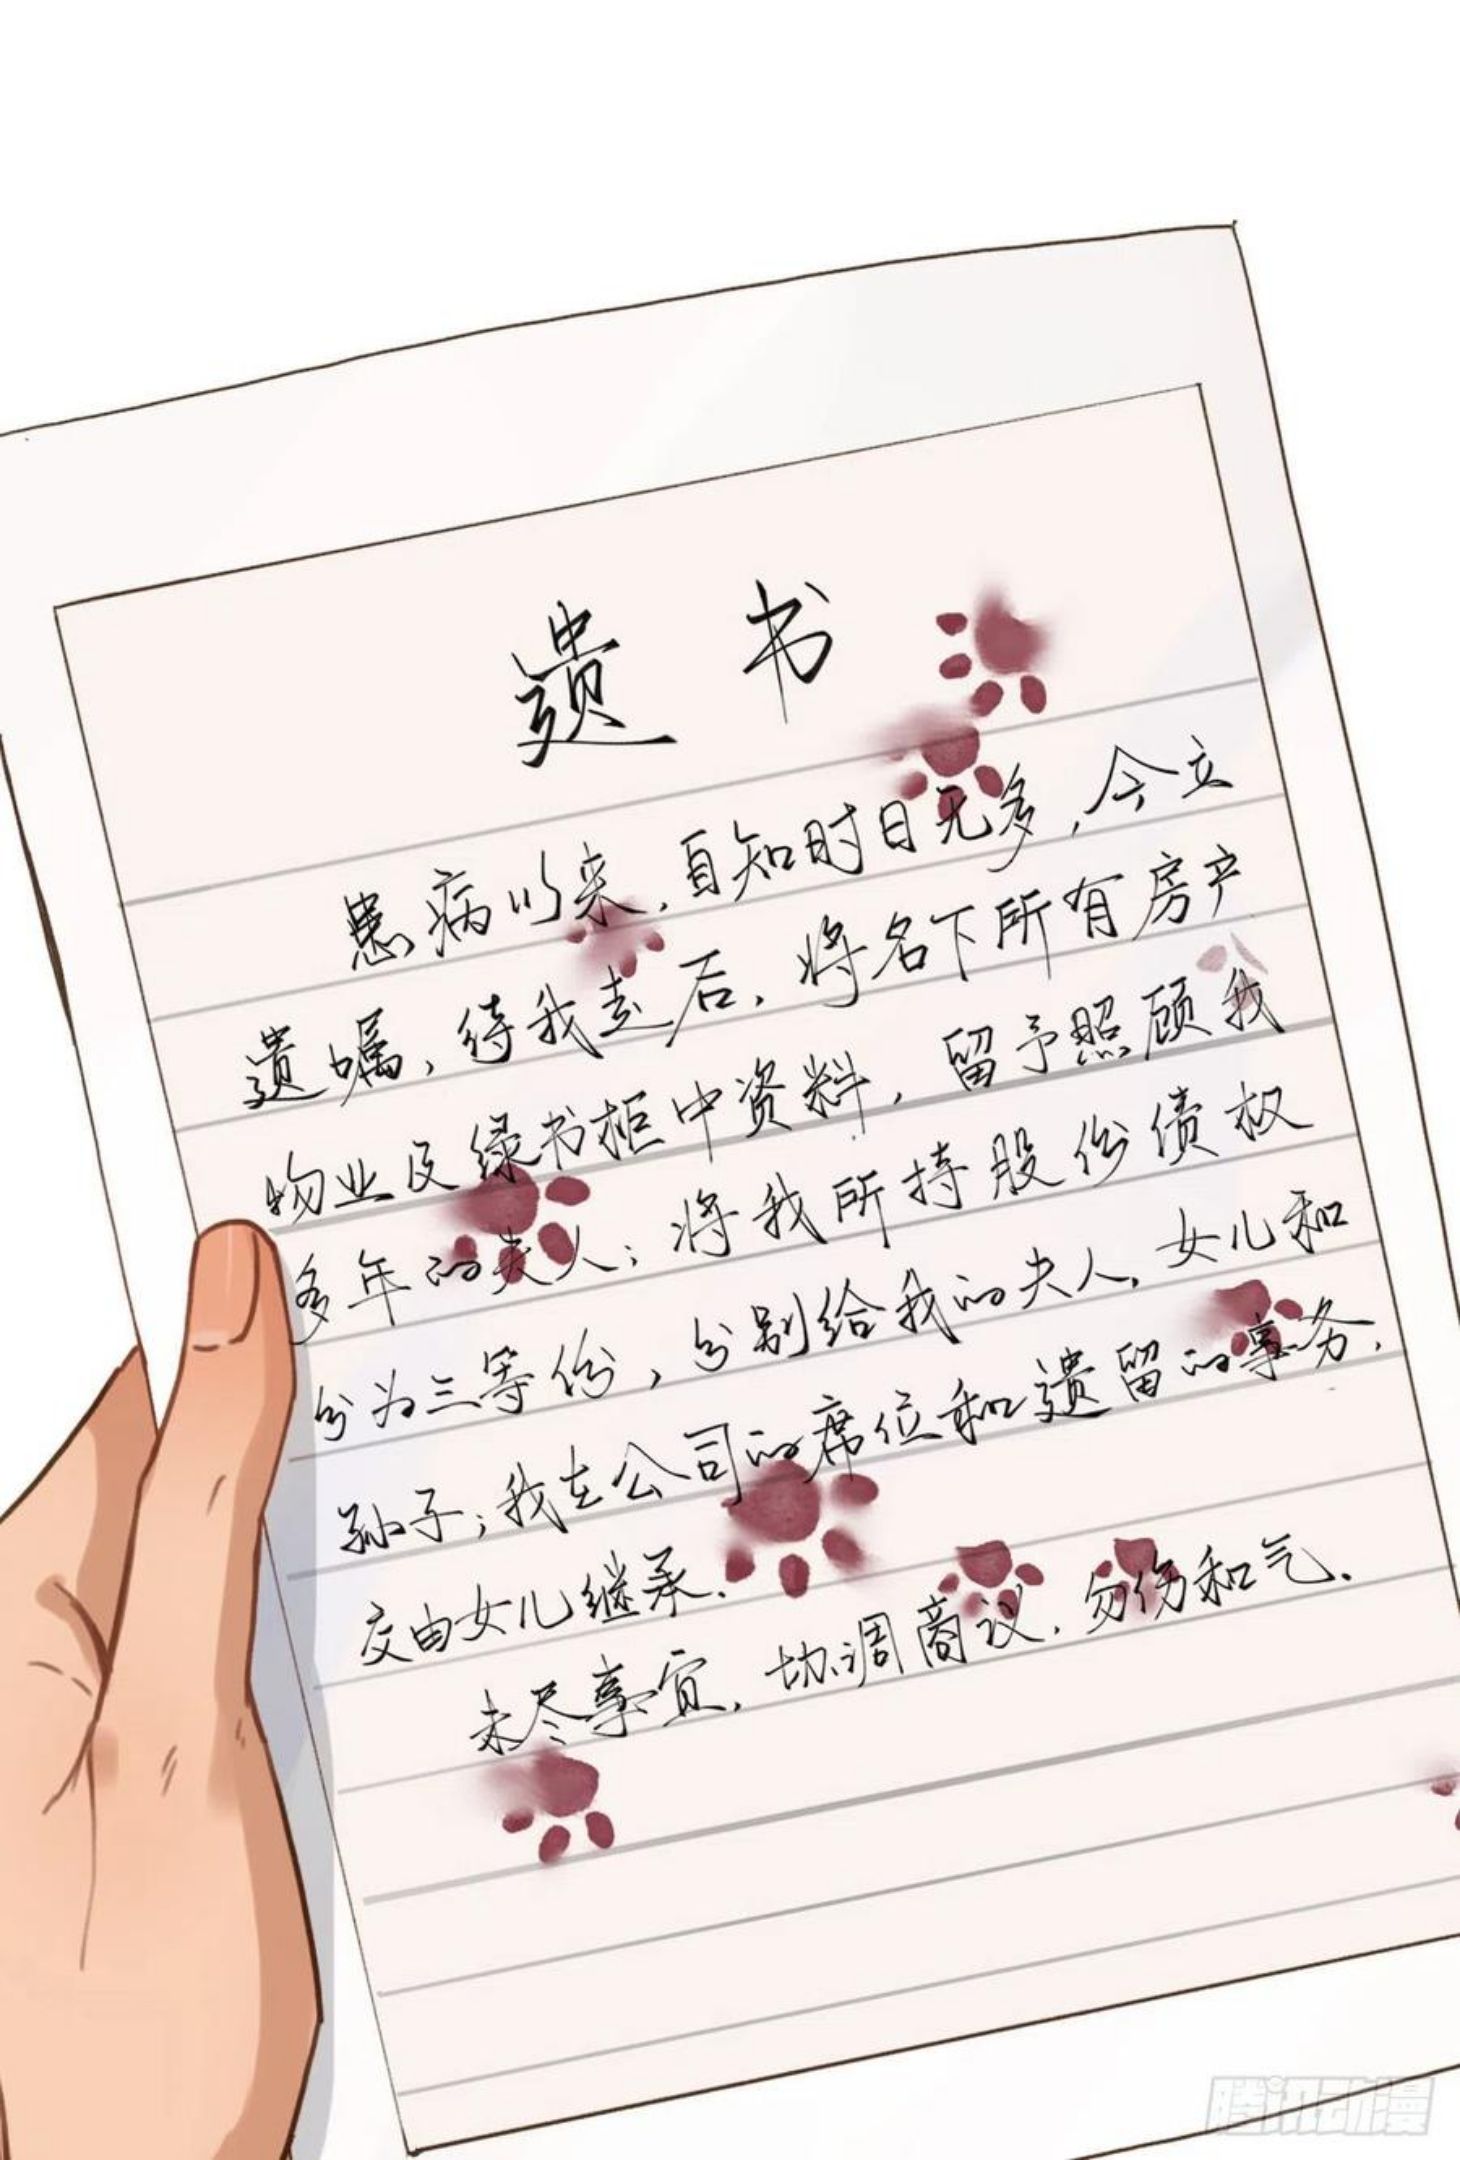 遗书
患病以来，自知时日无多，今立
遗嘱，待我走后，将名下所有房产
物业及绿书柜中资料，留予照顾我
多年的夫人；将我所持股份债权
分为三等份，分别给我的夫人，女儿和
孙子；我在公司的席位和遗留的事务，
交由女儿继承。
未尽事宜，协调商议，勿伤和气。
腾讯动漫